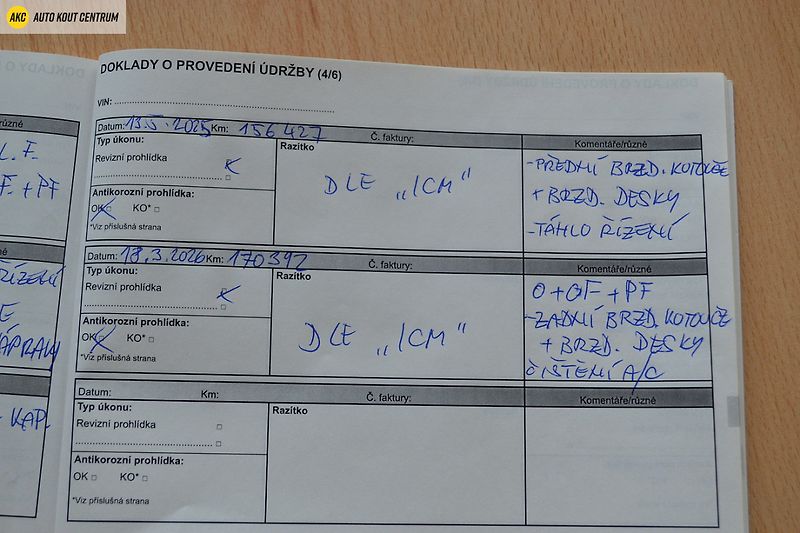 AKC AUTO KOUT CENTRUM
DOKLADY O PROVEDENÍ ÚDRŽBY (4/6)
VIN:
Datum: 13.5.2025 Km: 156 427 Č. faktury:
Typ úkonu:
Revizní prohlídka
Antikorozní prohlídka:
OK KO*
*Viz příslušná strana
Razítko
DLE „ICM"
Komentáře/různé
-PŘEDNÍ BRZD. KOTOUČE
+ BRZD. DESKY
-TÁHLO ŘÍZENÍ
Datum: 18.3.2026 Km: 170392 Č. faktury:
Typ úkonu:
Revizní prohlídka
Antikorozní prohlídka:
OK KO*
*Viz příslušná strana
Razítko
DLE „ICM"
Komentáře/různé
O+OF+PF
-ZADNÍ BRZD. KOTOUČE
+ BRZD. DESKY
ČIŠTĚNÍ A/C
Datum: Km: Č. faktury:
Typ úkonu:
Revizní prohlídka
Antikorozní prohlídka:
OK KO*
*Viz příslušná strana
Razítko
Komentáře/různé
různé
L.F.
F. + PF
ŘÍZENÍ
KAP.